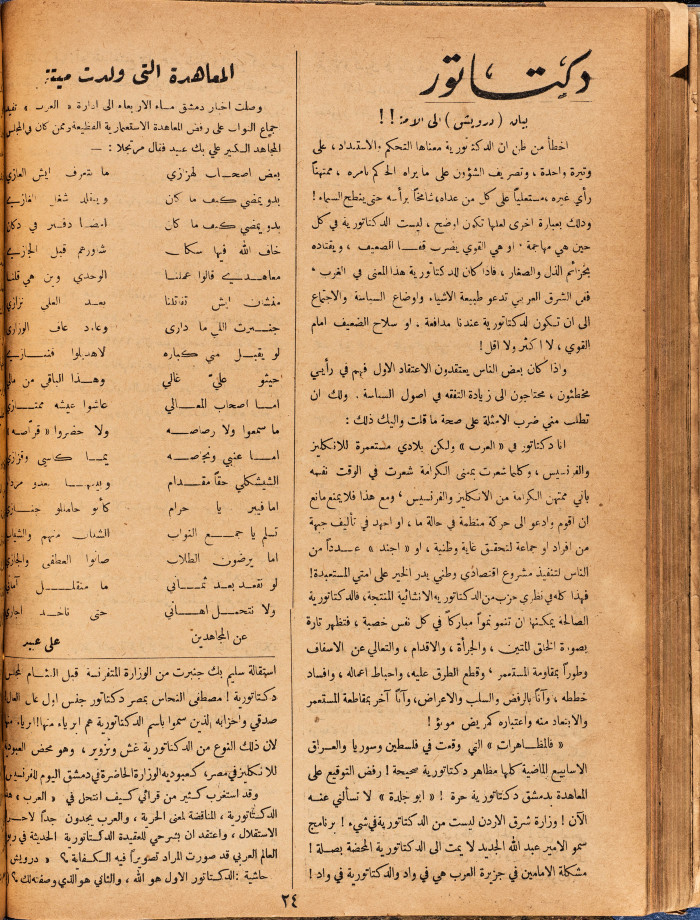 دكتاتور
بيان (درويش) الى الامة!!
اخطأ من ظن ان الدكتاتورية معناها التحكم والاستبداد، على
وتيرة واحدة، وتصريف الشؤون على ما يراه الحاكم بامره، ممتهناً
رأي غيره، مستعلياً على كل من عداه، شامخاً برأسه حتى ينطح السماء!
وذلك بعبارة اخرى لعلها تكون اوضح، ليست الدكتاتورية في كل
حين هي مهاجمة. او هي القوي يضرب قفا الضعيف، ويقتاده
بخزائم الذل والصغار، فاذا كان للدكتاتورية هذا المعنى في الغرب.
ففي الشرق العربي تدعو طبيعة الاشياء واوضاع السياسة والاجتماع
الى ان تكون الدكتاتورية عندنا مدافعة. او سلاح الضعيف امام
القوي، لا اكثر ولا اقل!
واذا كان بعض الناس يعتقدون الاعتقاد الاول فهم في رأيي
مخطئون، محتاجون الى زيادة التفقه في اصول السياسة. ولك ان
تطلب مني ضرب الامثلة على صحة ما قلت واليك ذلك:
انا دكتاتور في «العرب» ولكن بلادي مستعمرة للانكليز
والفرنسيس، وكلما شعرت بمعنى الكرامة شعرت في الوقت نفسه
باني ممتهن الكرامة من الانكليز والفرنسيس، ومع هذا فلا يمنع مانع
ان اقوم وادعو الى حركة منظمة في حالة ما، او اجهد في تأليف جبهة
من افراد او جماعة لتحقيق غاية وطنية، او «اجند» عدداً من
الناس لتنفيذ مشروع اقتصادي وطني يدر الخير على امتي المستعبدة!
فهذا كله في نظري حزب من الدكتاتورية الانشائية المنتجة، فالدكتاتورية
الصالحة يمكنها ان تنمو نمواً مباركاً في كل نفس خصبة، فتظهر تارة
بصورة الخلق المتين، والجرأة، والاقدام، والتعالي عن الاسفاف
وطوراً بمقاومة المستعمر، وقطع الطرق عليه، واحباط اعماله، وافساد
خططه، وآناً بالرفض والسلب والاعراض، وآناً آخر بمقاطعة المستعمر
والابتعاد منه واعتباره كمريض موبؤ!
«فالمظاهرات» التي وقعت في فلسطين وسوريا والعراق
الاسابيع الماضية كلها مظاهر دكتاتورية صحيحة! رفض التوقيع على
المعاهدة بدمشق دكتاتورية حرة! «ابو جلدة» لا تسألني عنه
الآن! وزارة شرق الاردن ليست من الدكتاتورية في شيء! برنامج
سمو الامير عبد الله الجديد لا يمت الى الدكتاتورية المحضة بصلة!
مشكلة الامامين في جزيرة العرب هي في واد والدكتاتورية في واد!
المعاهدة التي ولدت ميتة
وصلت اخبار دمشق مساء الاربعاء الى ادارة «العرب» تفيد
اجماع النواب على رفض المعاهدة الاستعمارية الفظيعة وممن كان في المجلس
المجاهد الكبير علي بك عبيد فقال مرتجلا: —
بعض اصحاب لهزازي ما تتعرف ايش العازي
بدو يمضي كيف ما كان وينقلد شغل الغازي
بدو يمضي كيف ما كان امضا دفتر في دكان
خاف الله فيها سكان شاورهم قبل الجازي
معاهدي قالوا عملنا الوحدي وين هي قلنا
مقشان ايش تقتلنا بعد العلي نزازي
جنبرت اللي ما دارى وعاد عاف الوزاري
لو يقبل مي كباره
احيثو عليّ غالي وهذا الباقي من مالي
اما اصحاب المعالي عاشوا عيشه ممتازي
ما سمعوا ولا رصاصه ولا حضروا «قراصه»
اما عنبي ونجاصه يما كاسي وقزازي
الشيشكلي حقاً مقدام
اما فيبر يا حرام
تسلم يا جمع النواب الشبان منهم والشياب
اما يرضون الطلاب صانوا العطفى والجازي
لو نقعد بعد ثماني ما منقبل آماني
ولا نتحمل اهاني حتى ناخد اجازي
عن المجاهدين علي عبيد
استقالة سليم بك جنبرت من الوزارة المتفرنسة قبل التئام المجلس
دكتاتورية! مصطفى النحاس بمصر دكتاتور جفس اول عال العال!
صدقي واحزابه الذين سموا باسم الدكتاتورية هم ابرياء منها! ابرياء منها
لان ذلك النوع من الدكتاتورية غش وتزوير، وهو محض العبودية
للانكليز في مصر، كعبودية الوزارة الحاضرة في دمشق اليوم للفرنسيس
وقد استغرب كثير من قرائي كيف انتحل في «العرب» هذه
الدكتاتورية، المناقضة لمعنى الحرية، والعرب يجدون جداً لاحراز
الاستقلال، واعتقد ان بشرحي للعقيدة الدكتاتورية الحديثة في ربوع
العالم العربي قد صورت المراد تصويراً فيه الكفاية؟ «درويش»
حاشية: الدكتاتور الاول هو الله، والثاني هو الذي وصفته لك؟
٢٤